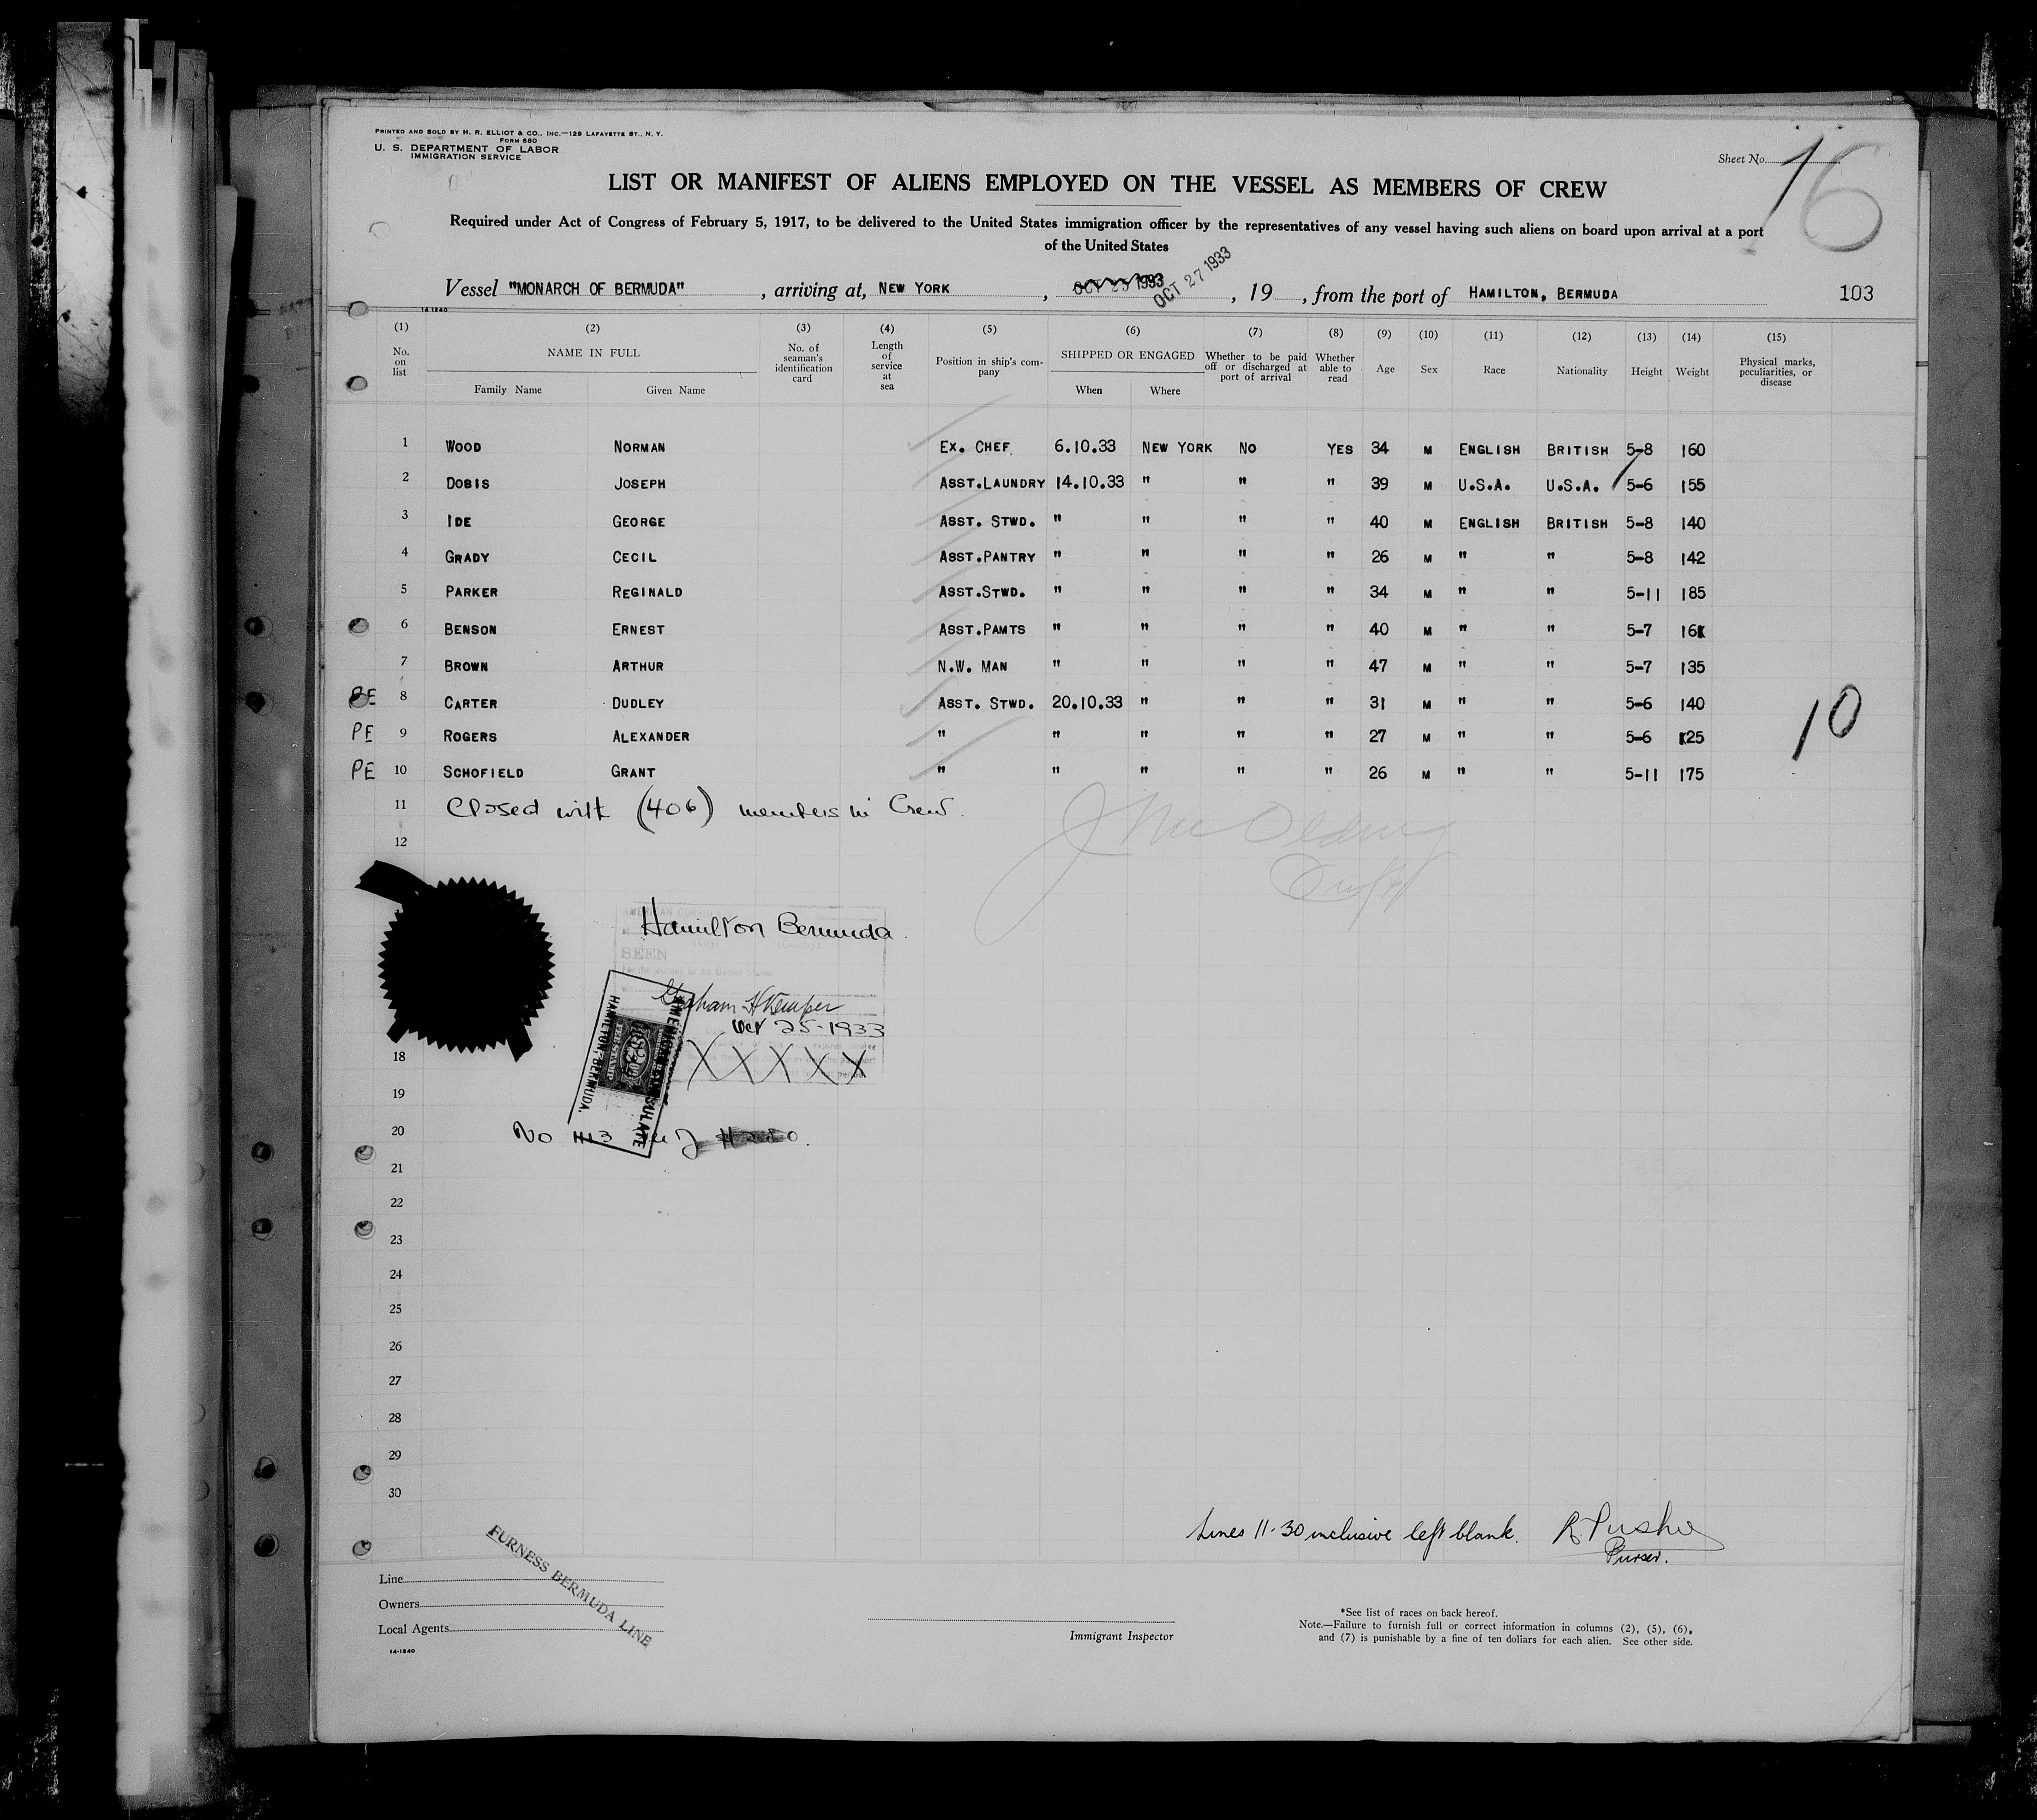 PRINTED AND SOLD BY H. R. ELLIOT & CO., INC.—129 LAFAYETTE ST., N. Y.
FORM 680
U. S. DEPARTMENT OF LABOR
IMMIGRATION SERVICE
Sheet No. 16
LIST OR MANIFEST OF ALIENS EMPLOYED ON THE VESSEL AS MEMBERS OF CREW
Required under Act of Congress of February 5, 1917, to be delivered to the United States immigration officer by the representatives of any vessel having such aliens on board upon arrival at a port
of the United States
Vessel "MONARCH OF BERMUDA", arriving at, NEW YORK, OCT 27 1933, 19 , from the port of HAMILTON, BERMUDA 103
14-1240
(1) (2) (3) (4) (5) (6) (7) (8) (9) (10) (11) (12) (13) (14) (15)
No. on list NAME IN FULL No. of seaman's identification card Length of service at sea Position in ship's company SHIPPED OR ENGAGED Whether to be paid off or discharged at port of arrival Whether able to read Age Sex Race Nationality Height Weight Physical marks, peculiarities, or disease
Family Name Given Name When Where
1 WOOD NORMAN EX. CHEF. 6.10.33 NEW YORK NO YES 34 M ENGLISH BRITISH 5-8 160
2 DOBIS JOSEPH ASST.LAUNDRY 14.10.33 " " " 39 M U.S.A. U.S.A. 5-6 155
3 IDE GEORGE ASST. STWD. " " " " 40 M ENGLISH BRITISH 5-8 140
4 GRADY CECIL ASST.PANTRY " " " " 26 M " " 5-8 142
5 PARKER REGINALD ASST.STWD. " " " " 34 M " " 5-11 185
6 BENSON ERNEST ASST.PAMTS " " " " 40 M " " 5-7
7 BROWN ARTHUR N.W. MAN " " " " 47 M " " 5-7 135
8 CARTER DUDLEY ASST. STWD. 20.10.33 " " " 31 M " " 5-6 140
PE 9 ROGERS ALEXANDER " " " " " 27 M " " 5-6 125
PE 10 SCHOFIELD GRANT " " " " " 26 M " " 5-11 175
10
11 Closed with (406) members in Crew.
12
Hamilton Bermuda.
SEEN
Graham H Kemper
Oct 25-1933
AMERICAN CONSULATE
HAMILTON, BERMUDA.
XXXXX
18
19
20 No
21
22
23
24
25
26
27
28
29
30
Lines 11-30 inclusive left blank.
Purser.
FURNESS BERMUDA LINE
Line
Owners
Local Agents
14-1240
Immigrant Inspector
*See list of races on back hereof.
Note.—Failure to furnish full or correct information in columns (2), (5), (6),
and (7) is punishable by a fine of ten dollars for each alien. See other side.